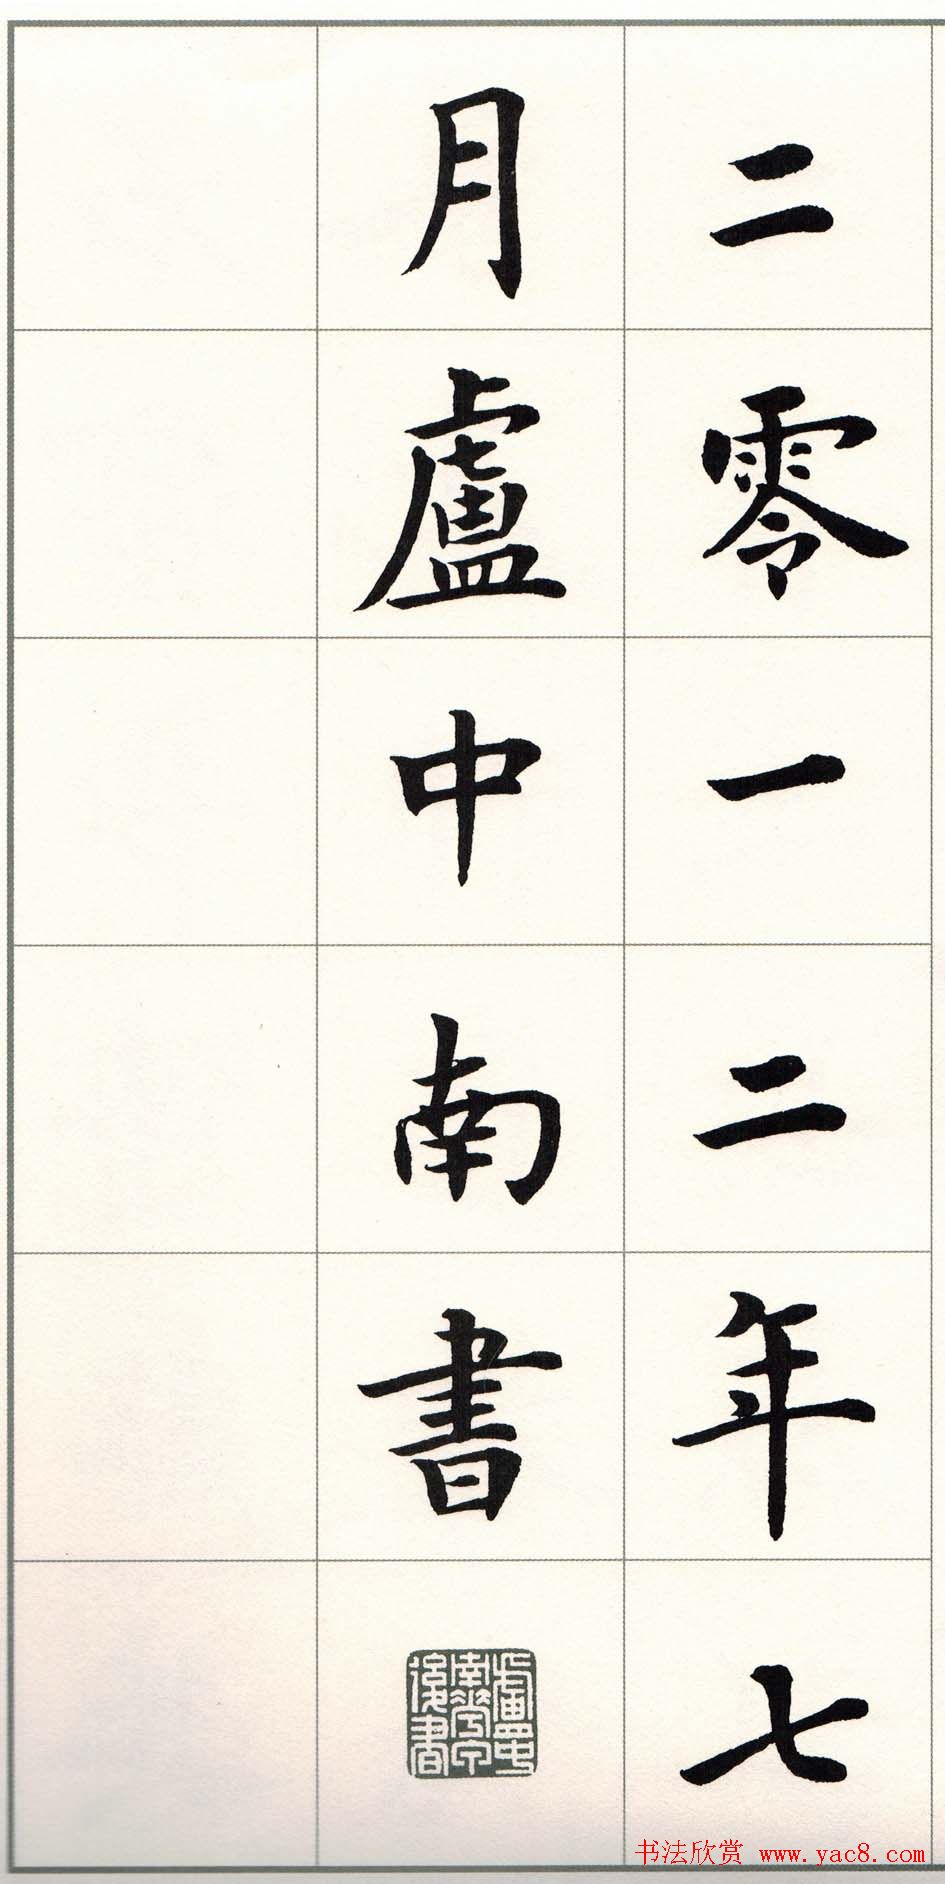 二零一二年七
月盧中南書
书法欣赏 www.yac8.com